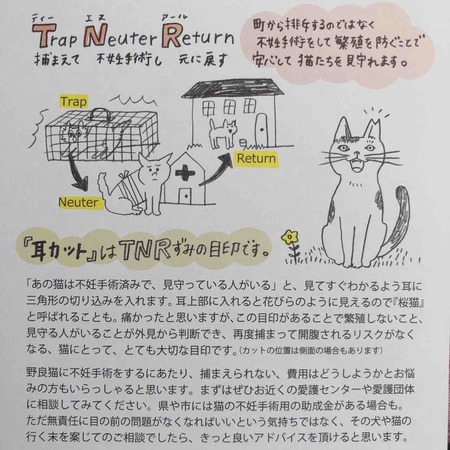 ティー エヌ アール
Trap Neuter Return
捕まえて 不妊手術し 元に戻す
町から排斥するのではなく
不妊手術をして繁殖を防ぐことで
安心して猫たちを見守れます。
Trap
Return
Neuter
『耳カット』はTNRずみの目印です。
「あの猫は不妊手術済みで、見守っている人がいる」と、見てすぐわかるよう耳に
三角形の切り込みを入れます。耳上部に入れると花びらのように見えるので『桜猫』
と呼ばれることも。痛かったと思いますが、この目印があることで繁殖しないこと、
見守る人がいることが外見から判断でき、再度捕まって開腹されるリスクがなく
なる、猫にとって、とても大切な目印です。（カットの位置は側面の場合もあります）
野良猫に不妊手術をするにあたり、捕まえられない、費用はどうしようかとお悩
みの方もいらっしゃると思います。まずはぜひお近くの愛護センターや愛護団体
に相談してみてください。県や市には猫の不妊手術用の助成金がある場合も。
ただ無責任に目の前の問題がなくなればいいという気持ちではなく、その犬や猫の
行く末を案じてのご相談でしたら、きっと良いアドバイスを頂けると思います。